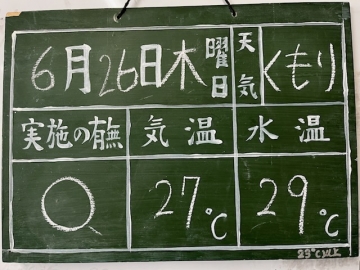 6月26日木曜日 天気 くもり
実施の有無 気温 水温
○ 27℃ 29℃